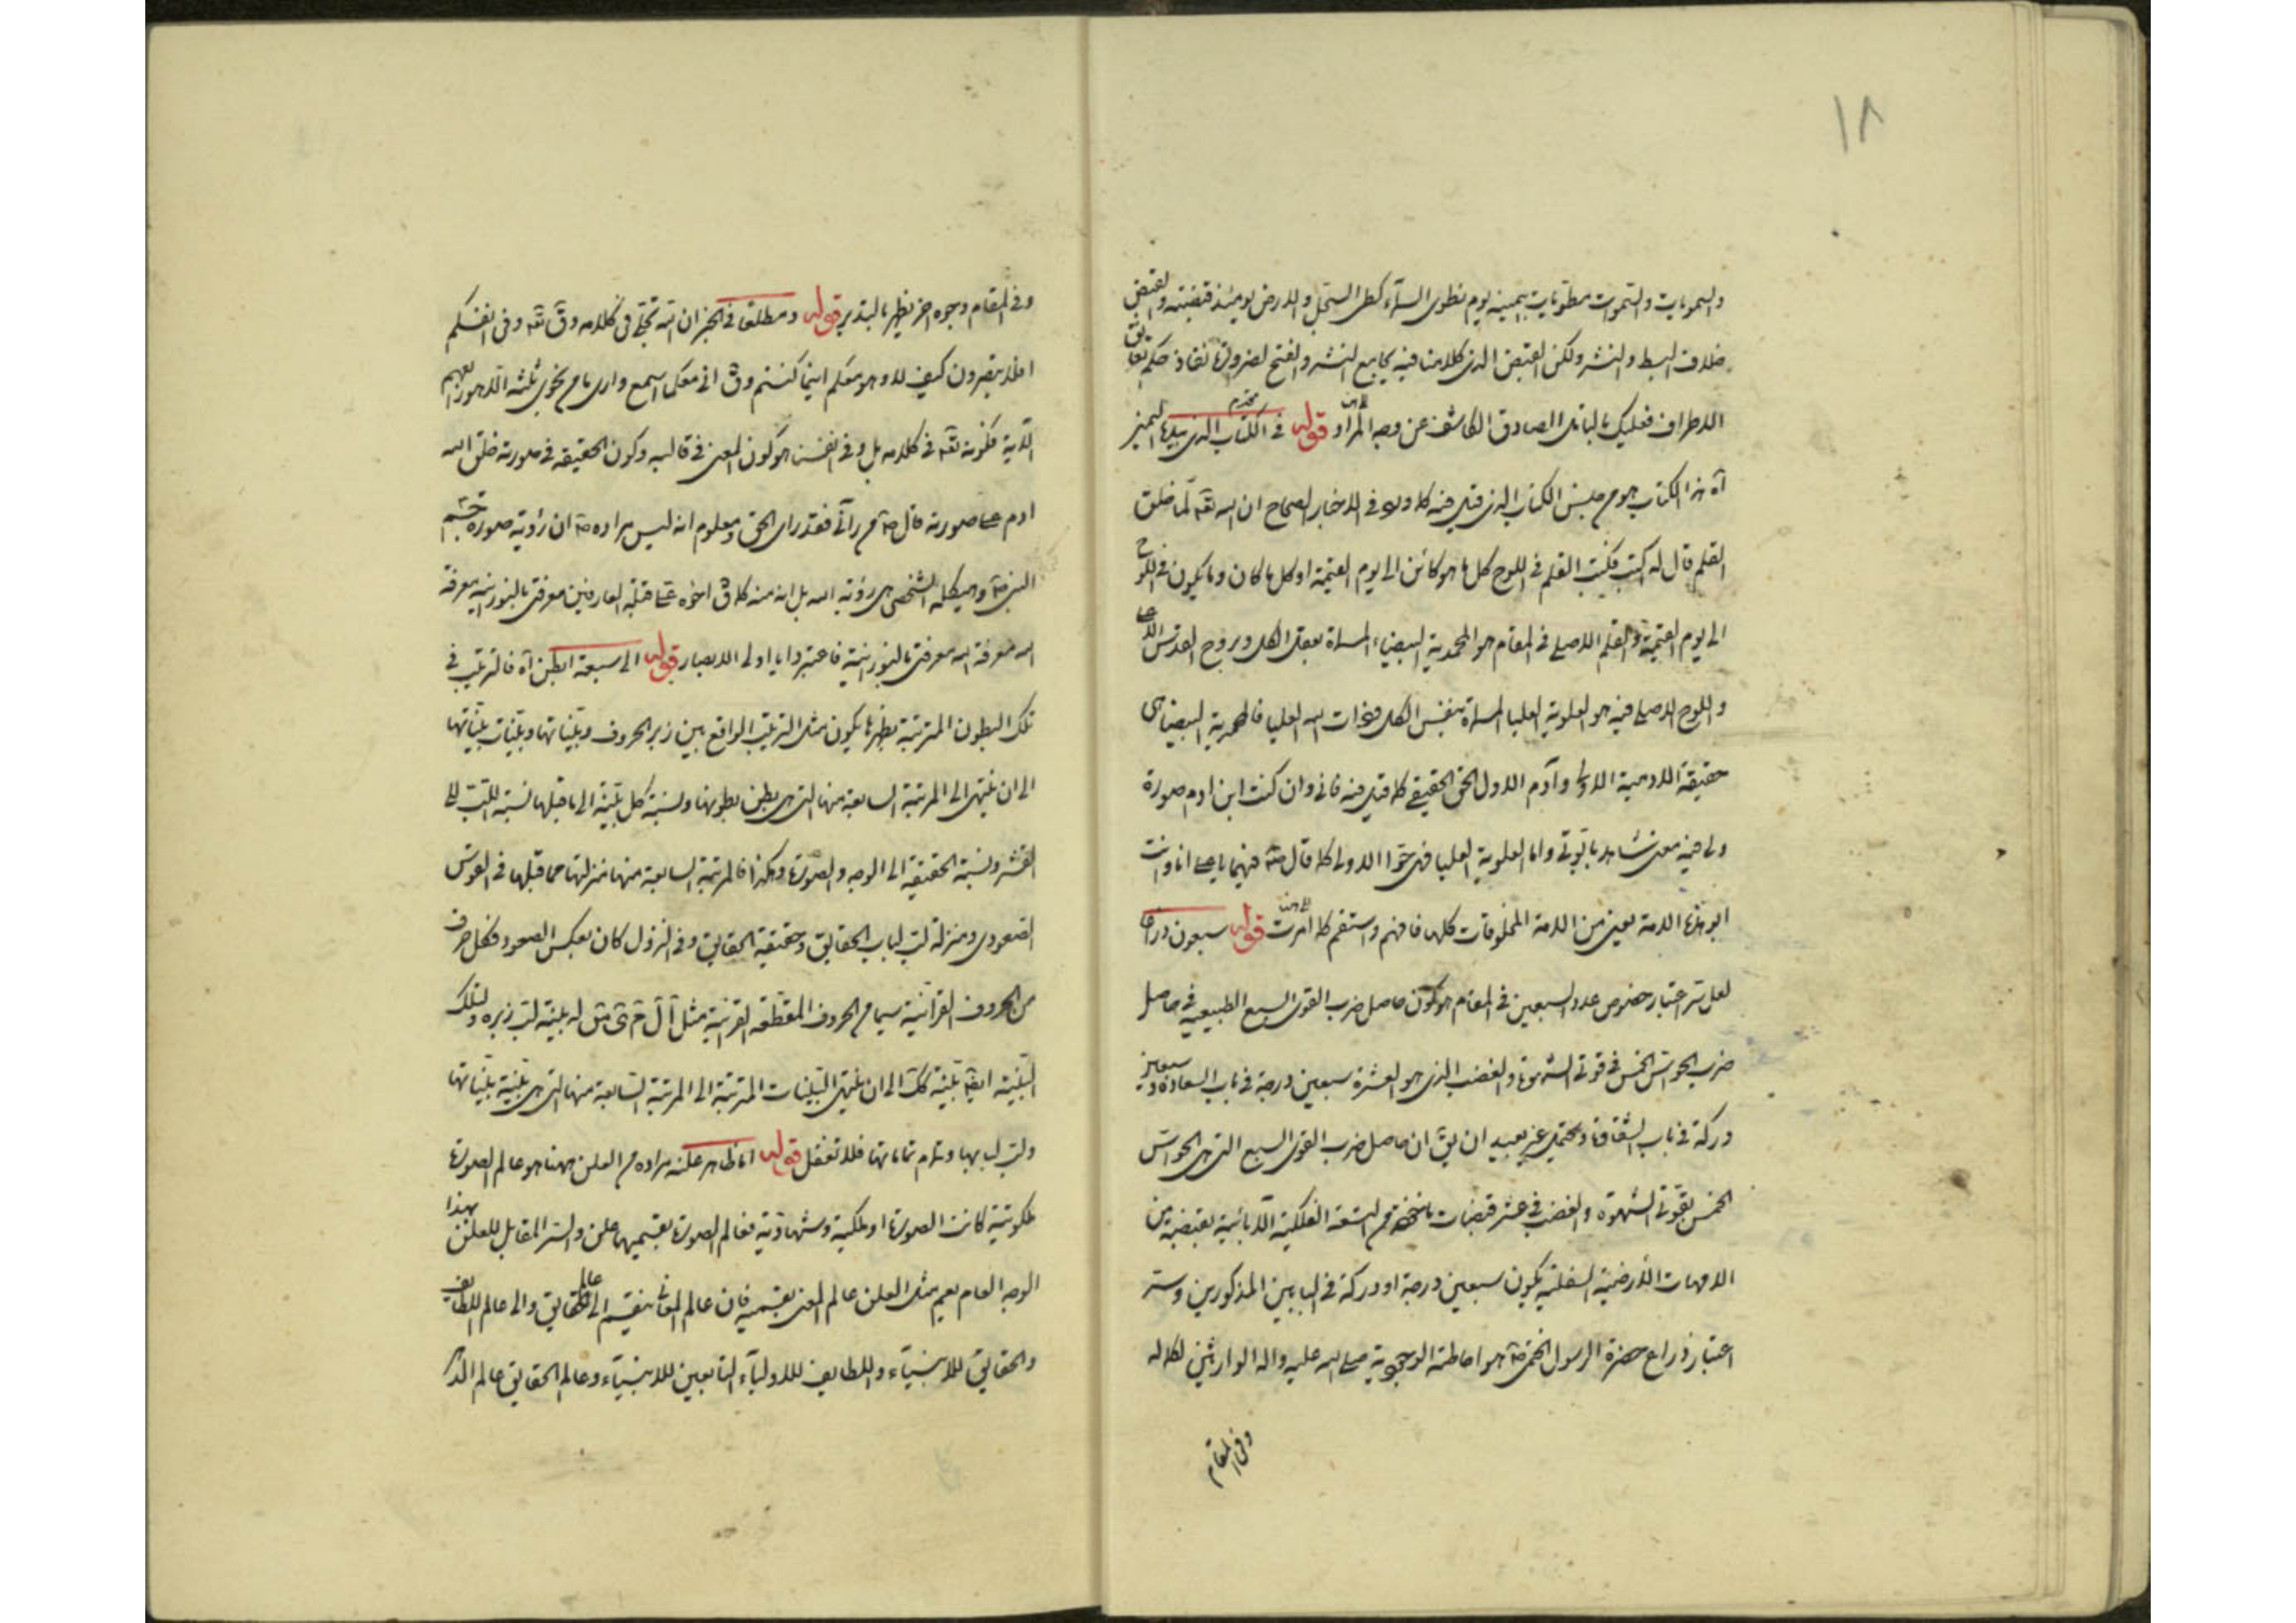 ١٨
والسمويات والسموات مطويات بيمينه يوم نطوى السماء كطى السجل والارض يومئذ قبضته والقبض
خلاف البسط والنشر ولكن القبض الذى كلامنا فيه يجامع النشر والفتح لضرورة نفاذ حكم
الاطراف فعليك بالتأمل الصادق الكاشف عن وجه المراد قوله فى الكتاب الذى بيده اليمنى
آه هذا الكتاب هو من جنس الكتاب الذى قيل فيه كما ورد فى الاخبار الصحاح ان الله تقه لما خلق
القلم قال له اكتب فكتب القلم فى اللوح كل ما هو كائن الى يوم القيمة او كل ما كان وما يكون فى اللوح
الى يوم القيمة والقلم الاصلى فى المقام هو المحمدية البيضاء المسماة بعقل الكل وبروح القدس الاعلى
واللوح الاصلى فيه هو العلوية العليا المسماة بنفس الكل وذات الله العليا فالمحمدية البيضا هى
حقيقة الادمية الاولى وآدم الاول الحق الحقيقى كما قيل فيه فانى وان كنت ابن ادم صورة
ولى فيه معنى شاهد بابوتى واما العلوية العليا فهى حوا الاولى كما قال ص فيهما يا على انا وانت
ابوا هذه الامة يعنى من الامة المخلوقات كلها فافهم واستقم كما امرت قوله سبعون ذراعا
لعل سر اعتبار خصوص عدد السبعين فى المقام هو كون حاصل ضرب القوى السبع الطبيعيه فى حاصل
ضرب الحواس الخمس فى قوتى الشهوة والغضب الذى هو العشرة سبعين درجة فى باب السعادة وسبعين
دركة فى باب الشقاوة ويحتمل غير بعيد ان يق ان حاصل ضرب القوى السبع التى هى الحواس
الخمس بقوتى الشهوة والغضب فى عشر قبضات مأخوذة من التسعة الفلكية الآبائية بقبضة من
الامهات الارضية السفلية يكون سبعين درجة او دركة فى البابين المذكورين وستر
اعتبار ذراع حضرة الرسول الختمى ص هو احاطته الوجوبية صلى الله عليه واله الوارثين لكماله
وفى المقام
وفى المقام وجوه اخر يظهر بالتدبر قوله ومطلقا فى الخبر ان الله تجلى فى كلامه وق تقه وفى انفسكم
افلا تبصرون كيف لا وهو معكم اينما كنتم وق انى معكما اسمع وارى ما من نجوى ثلثه الا هو رابعهم
الآية فكونه تقه فى كلامه بل وفى انفسنا هو كون المعنى فى قالبه وكون الحقيقه فى صورته خلق الله
ادم على صورته قال ص من رآنى فقد راى الحق ومعلوم انه ليس مراده ص ان رؤية صورة جسم
النبى ص وهيكله الشخصى هى رؤية الله بل انه منه كما ق اخوه على قبلة العارفين معرفتى بالنورانيه معرفة
الله معرفة الله معرفتى بالنورانية فاعتبروا يا اولى الابصار قوله الى سبعة ابطن آه فالترتيب فى
تلك البطون المترتبة بظهرها يكون مثل الترتيب الواقع بين زبر الحروف وبيّناتها وبيّنات بيّناتها
الى ان ينتهى الى المرتبة السابعة منها التى هى بطن بطونها ونسبة كل بيّنة الى ما قبلها نسبة اللب الى
القشر ونسبة الحقيقة الى الوجه والصورة وهكذا فالمرتبة السابعة منها منزلتها مما قبلها فى القوس
الصعودى بمنزلة لب لباب الحقايق وحقيقة الحقايق وفى النزول كان بعكس الصعود فكل حرف
من الحروف القرآنية سيما من الحروف المقطعة القرآنية مثل آ ل م ى ق له بيّنة لب زبره ولتلك
البيّنة ايضا بيّنة كك الى ان ينتهى البيّنات المترتبة الى المرتبة السابعة منها التى هى بيّنة بيّناتها
ولب لبابها وتمام تماماتها فلا تغفل قوله اما ظاهر علنه مراده من العلن ههنا هو عالم الصورة
ملكوتية كانت الصورة او ملكية وشهادية فعالم الصورة بقسميها علن والسر المقابل للعلن بهذا
الوجه العام يعم مثل العلن عالم المعنى بقسميه فان عالم المعانى ينقسم الى عالم الحقايق والى عالم اللطايف
والحقايق للانبياء واللطايف للاولياء التابعين للانبياء وعالم الحقايق عالم الذكر